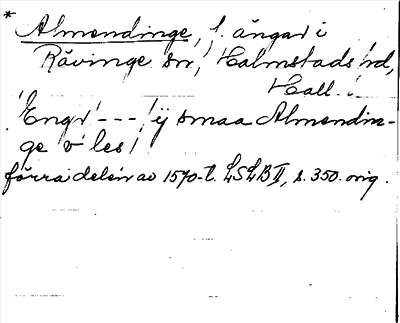 * Almendinge, f. ängar i
Rävinge sn, Halmstads hd,
Hall.
'Engr' --- ij smaa Almendin-
ge v les
förra delen av 1570-t. LSLB II, s. 350. orig.